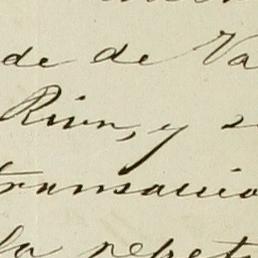 de de Va
Rivn, y s
transacio
la repet